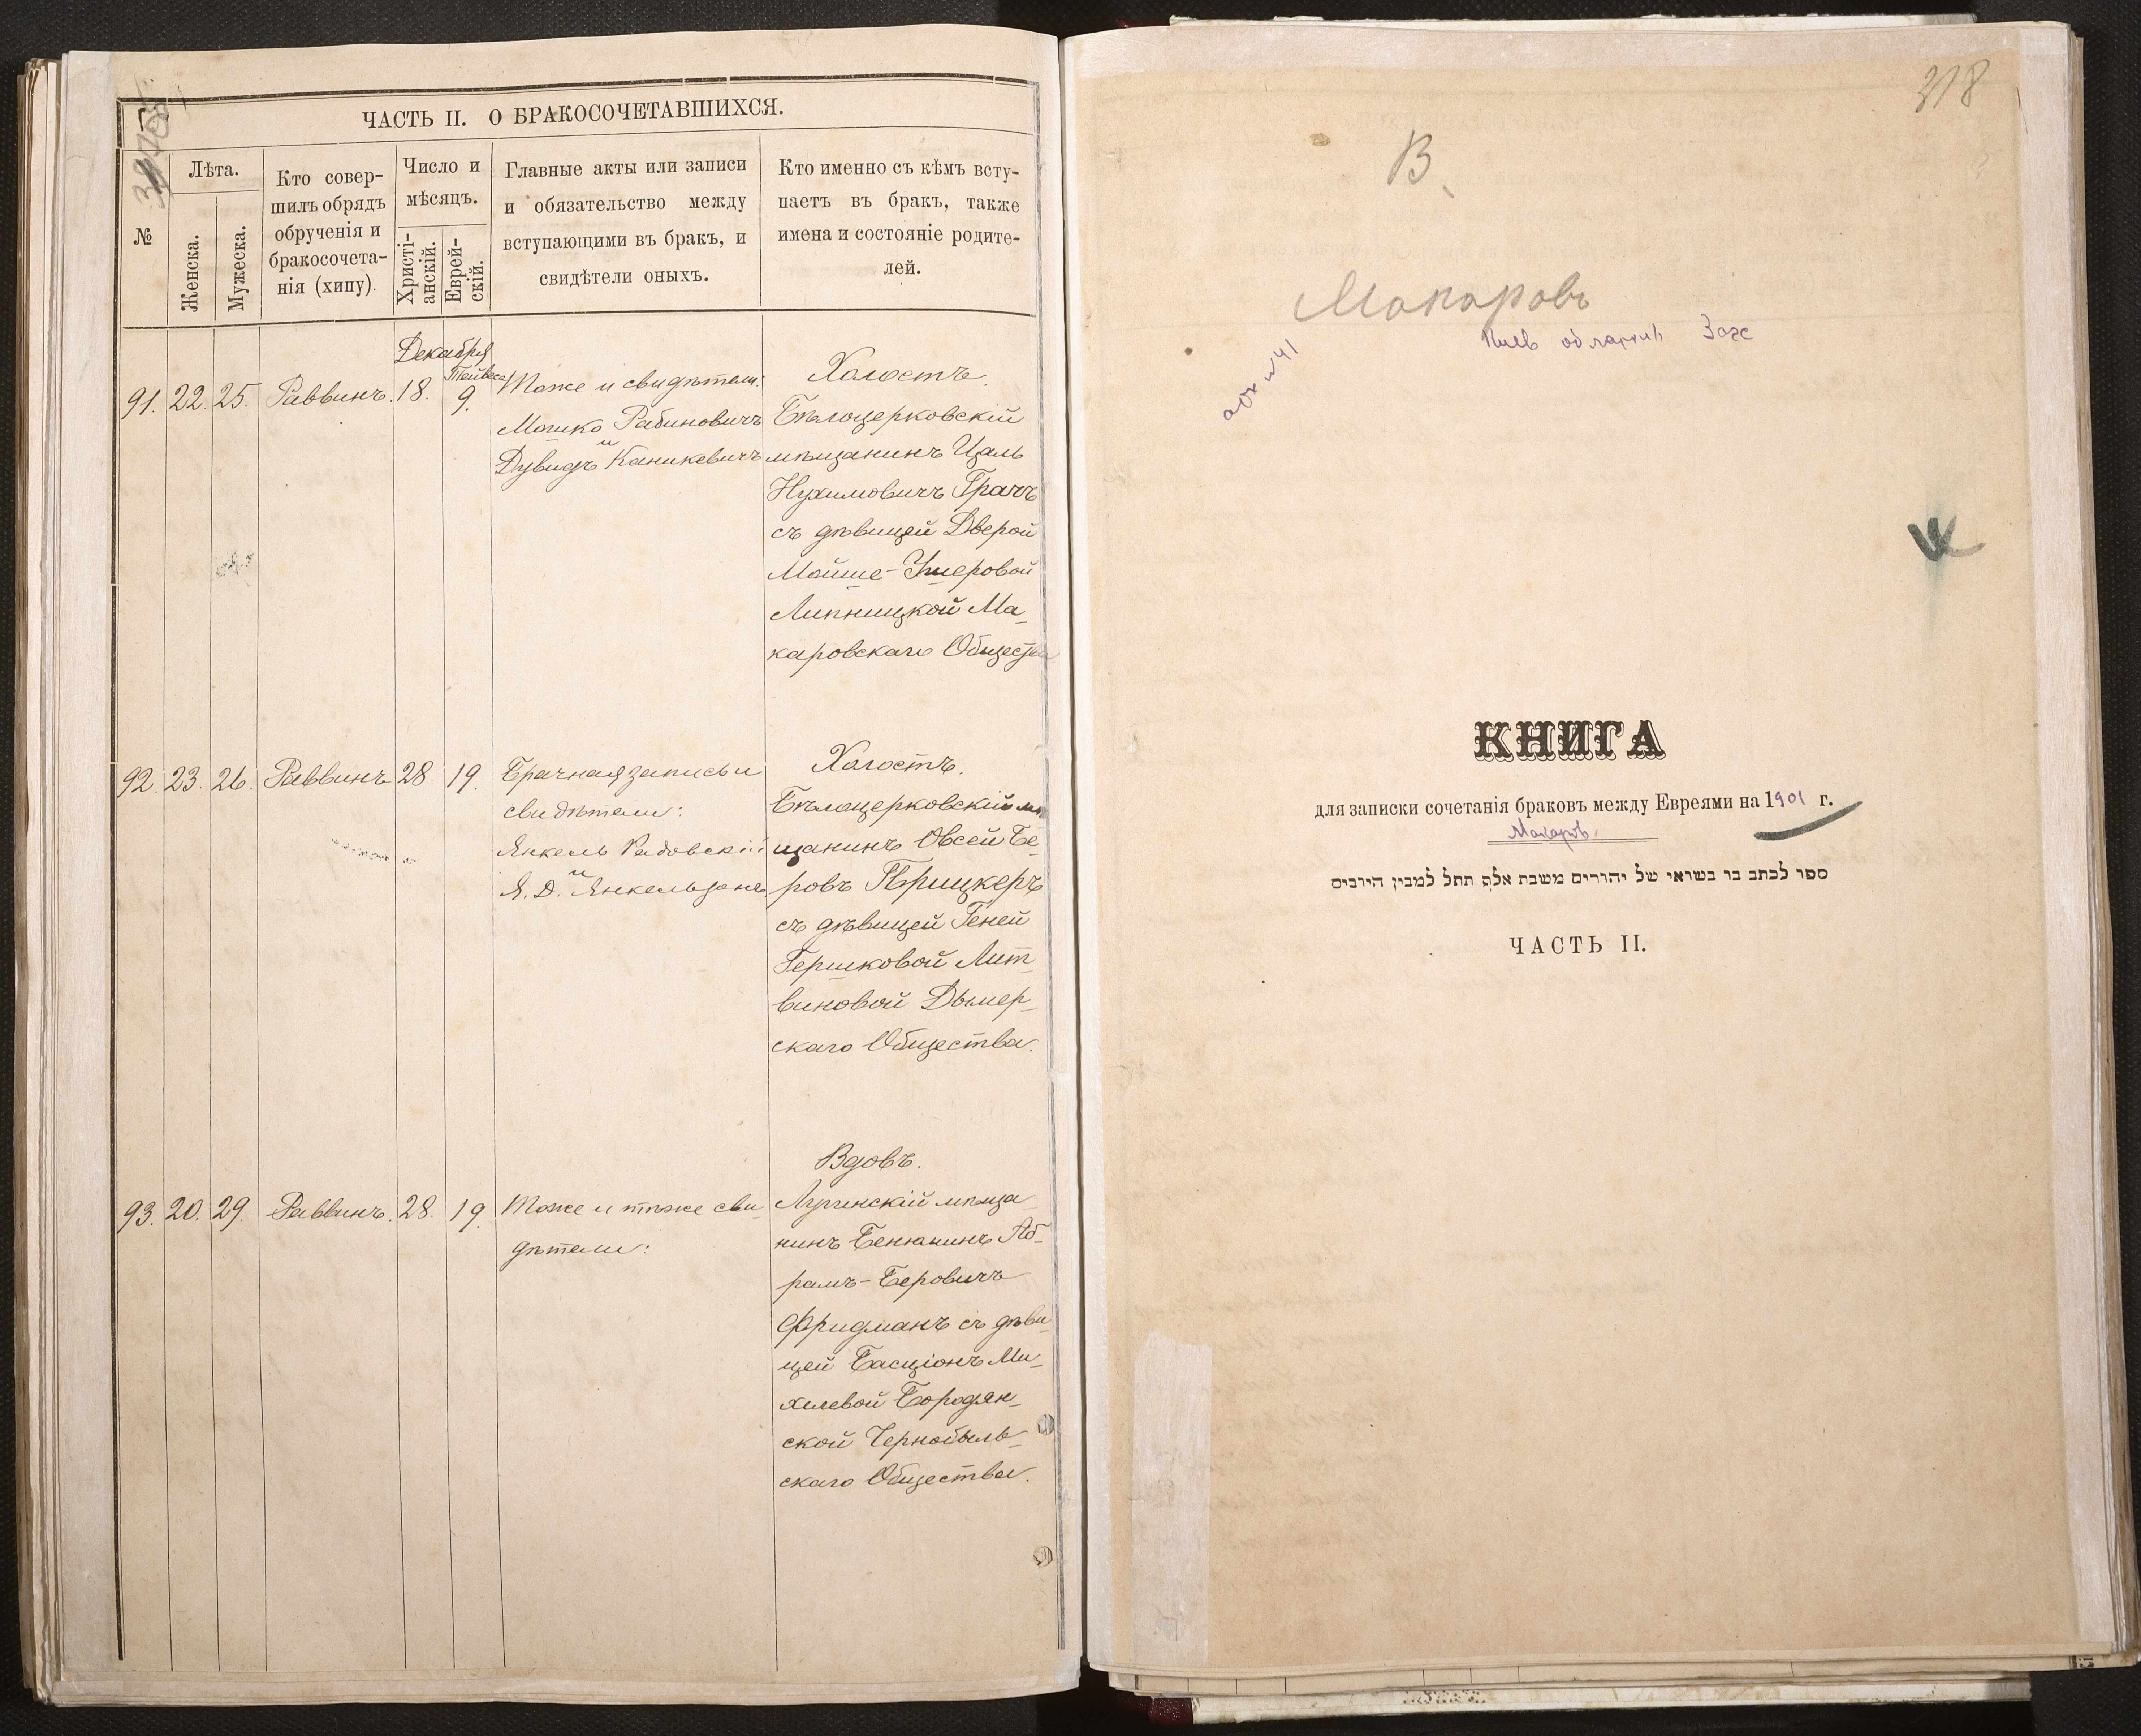 ЧАСТЬ II. О БРАКОСОЧЕТАВШИХСЯ.
№
Лѣта.
Женска.
Мужеска.
Кто совер-
шилъ обрядъ
обрученія и
бракосочета-
нія (хипу).
Число и
мѣсяцъ.
Христі-
анскій.
Еврей-
скій.
Главные акты или записи
и обязательство между
вступающими въ бракъ, и
свидѣтели оныхъ.
Кто именно съ кѣмъ всту-
паетъ въ бракъ, также
имена и состояніе родите-
лей.
Декабря
Тейвеса
91. 22. 25. Раввинъ. 18. 9.
Тоже и свидѣтели:
Мошко Рабиновичъ
и
Дувидъ Каникевичъ
Холостъ.
Бѣлоцерковскій
мѣщанинъ Цаль
Нухимовичъ Грачъ
съ дѣвицей Дверой
Мойше-Ушеровой
Липницкой Ма-
каровскаго Общества
92. 23. 26. Раввинъ 28 19.
Брачная запись и
свидѣтели:
Янкель Радовскій
и
Я. Д. Янкельзонъ
Холостъ.
Бѣлоцерковскій мѣ
щанинъ Овсей Бе-
ровъ Прицкеръ
съ дѣвицей Геней
Гершковой Лит-
виновой Дымер-
скаго Общества.
93. 20. 29. Раввинъ. 28. 19.
Тоже и тѣже сви-
дѣтели:
Вдовъ.
Лугинскій мѣща-
нинъ Беньминъ Аб-
рамъ-Беровичъ
Фридманъ съ дѣви-
цей Басціонъ Ми-
хелевой Бородян-
ской Чернобыль-
скаго Общества.
318
В
Макаровъ
Киев областн Загс
КНИГА
для записки сочетанія браковъ между Евреями на 1901 г.
Макаров
ספר לכתב בו בשואי של יהורים משבת אלף תתל למבין היובים
ЧАСТЬ II.